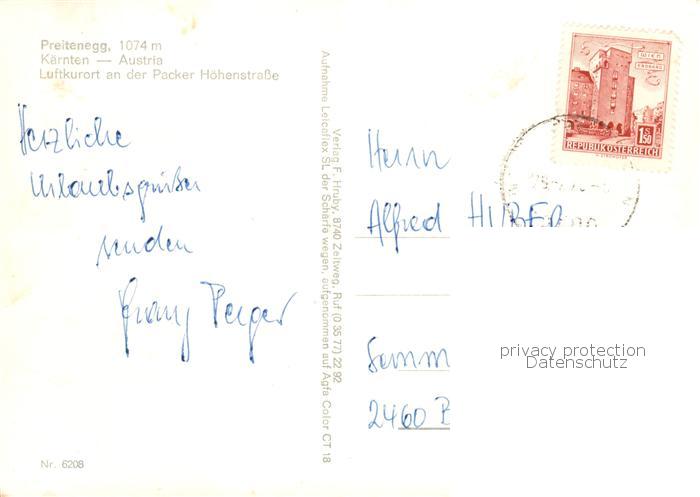 Preitenegg, 1074 m
Kärnten — Austria
Luftkurort an der Packer Höhenstraße
Herzliche
Urlaubsgrüße
senden
Nr. 6208
Verlag F. Hruby, 8740 Zeltweg, Ruf (0 35 77) 22 92
Aufnahme Leicaflex SL der Schärfe wegen, aufgenommen auf Agfa Color CT 18
WIEN
ERDBERG
1.50 S
REPUBLIK ÖSTERREICH
Herrn
Alfred HUBER
2460 B
privacy protection
Datenschutz